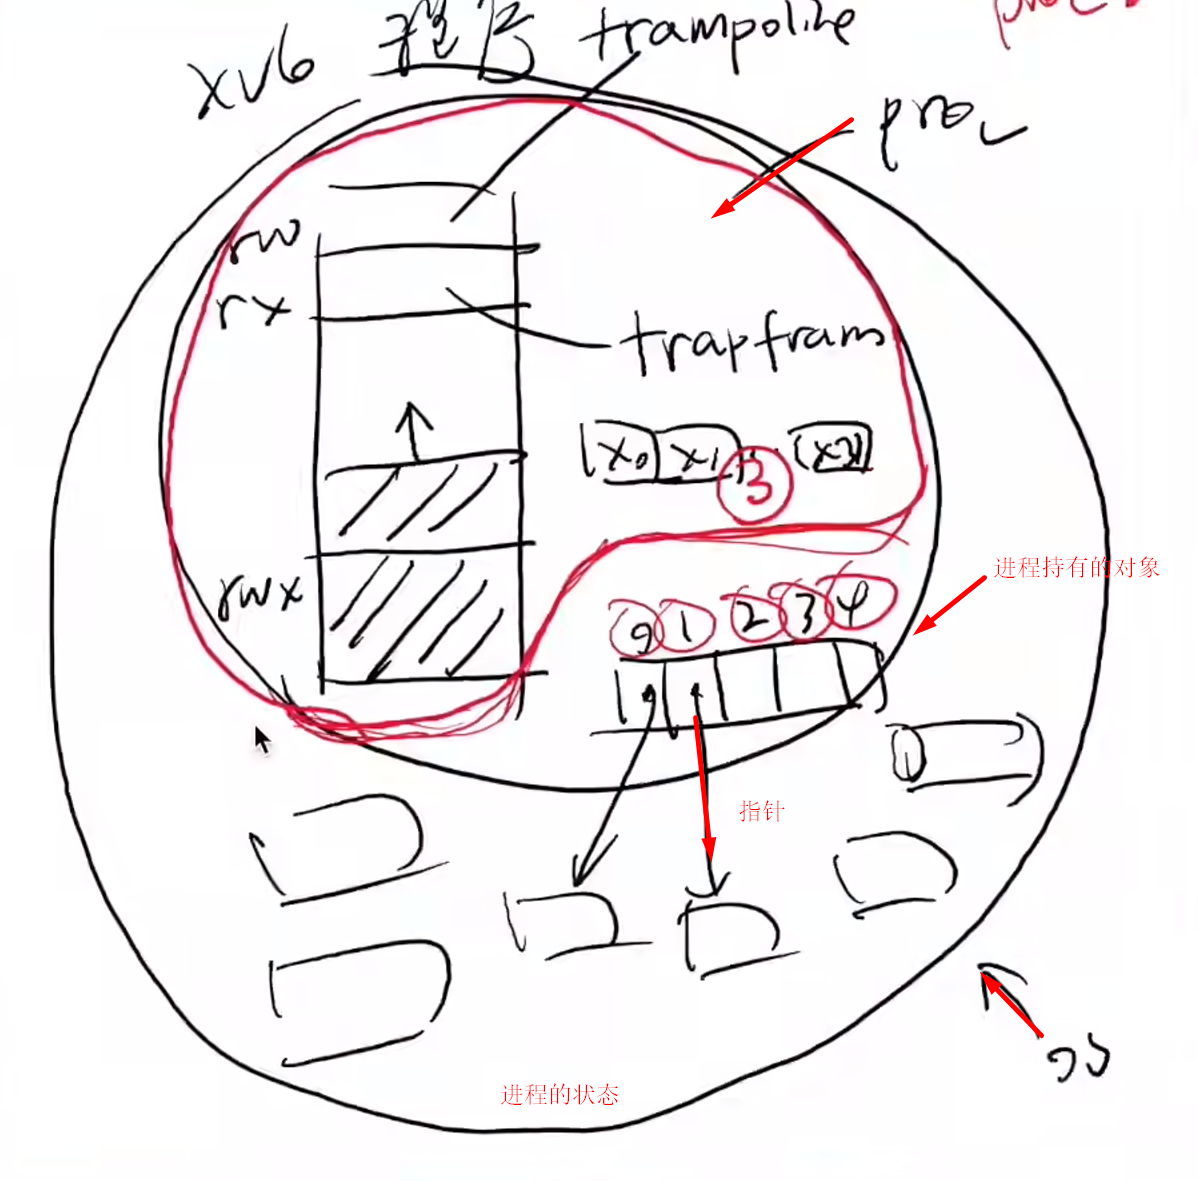 xv6 程序 trampoline
proc
rw
rx
trapfram
x0 x1 x31
3
进程持有的对象
rwx
0 1 2 3 4
指针
os
进程的状态